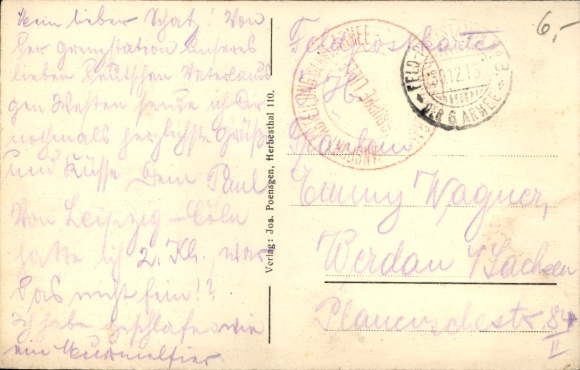 Mein lieber Schatz! Von
der Grenzstation unseres
lieben Deutschen Vaterlandes
gen Westen sende ich Dir
nochmals herzlichste Grüße
und Küsse Dein Paul
Von Leipzig – Cöln
hatte ich 2. Kl. war
das nicht fein!?
Ich habe geschlafen wie
ein Murmeltier.
Verlag: Jos. Poensgen, Herbesthal 110.
6,-
Feldpostkarte
FELD-
30.12.15
DER 6. ARMEE
Emmy Wagner,
Werdau i/Sachsen
Plauenschestr. 84
II